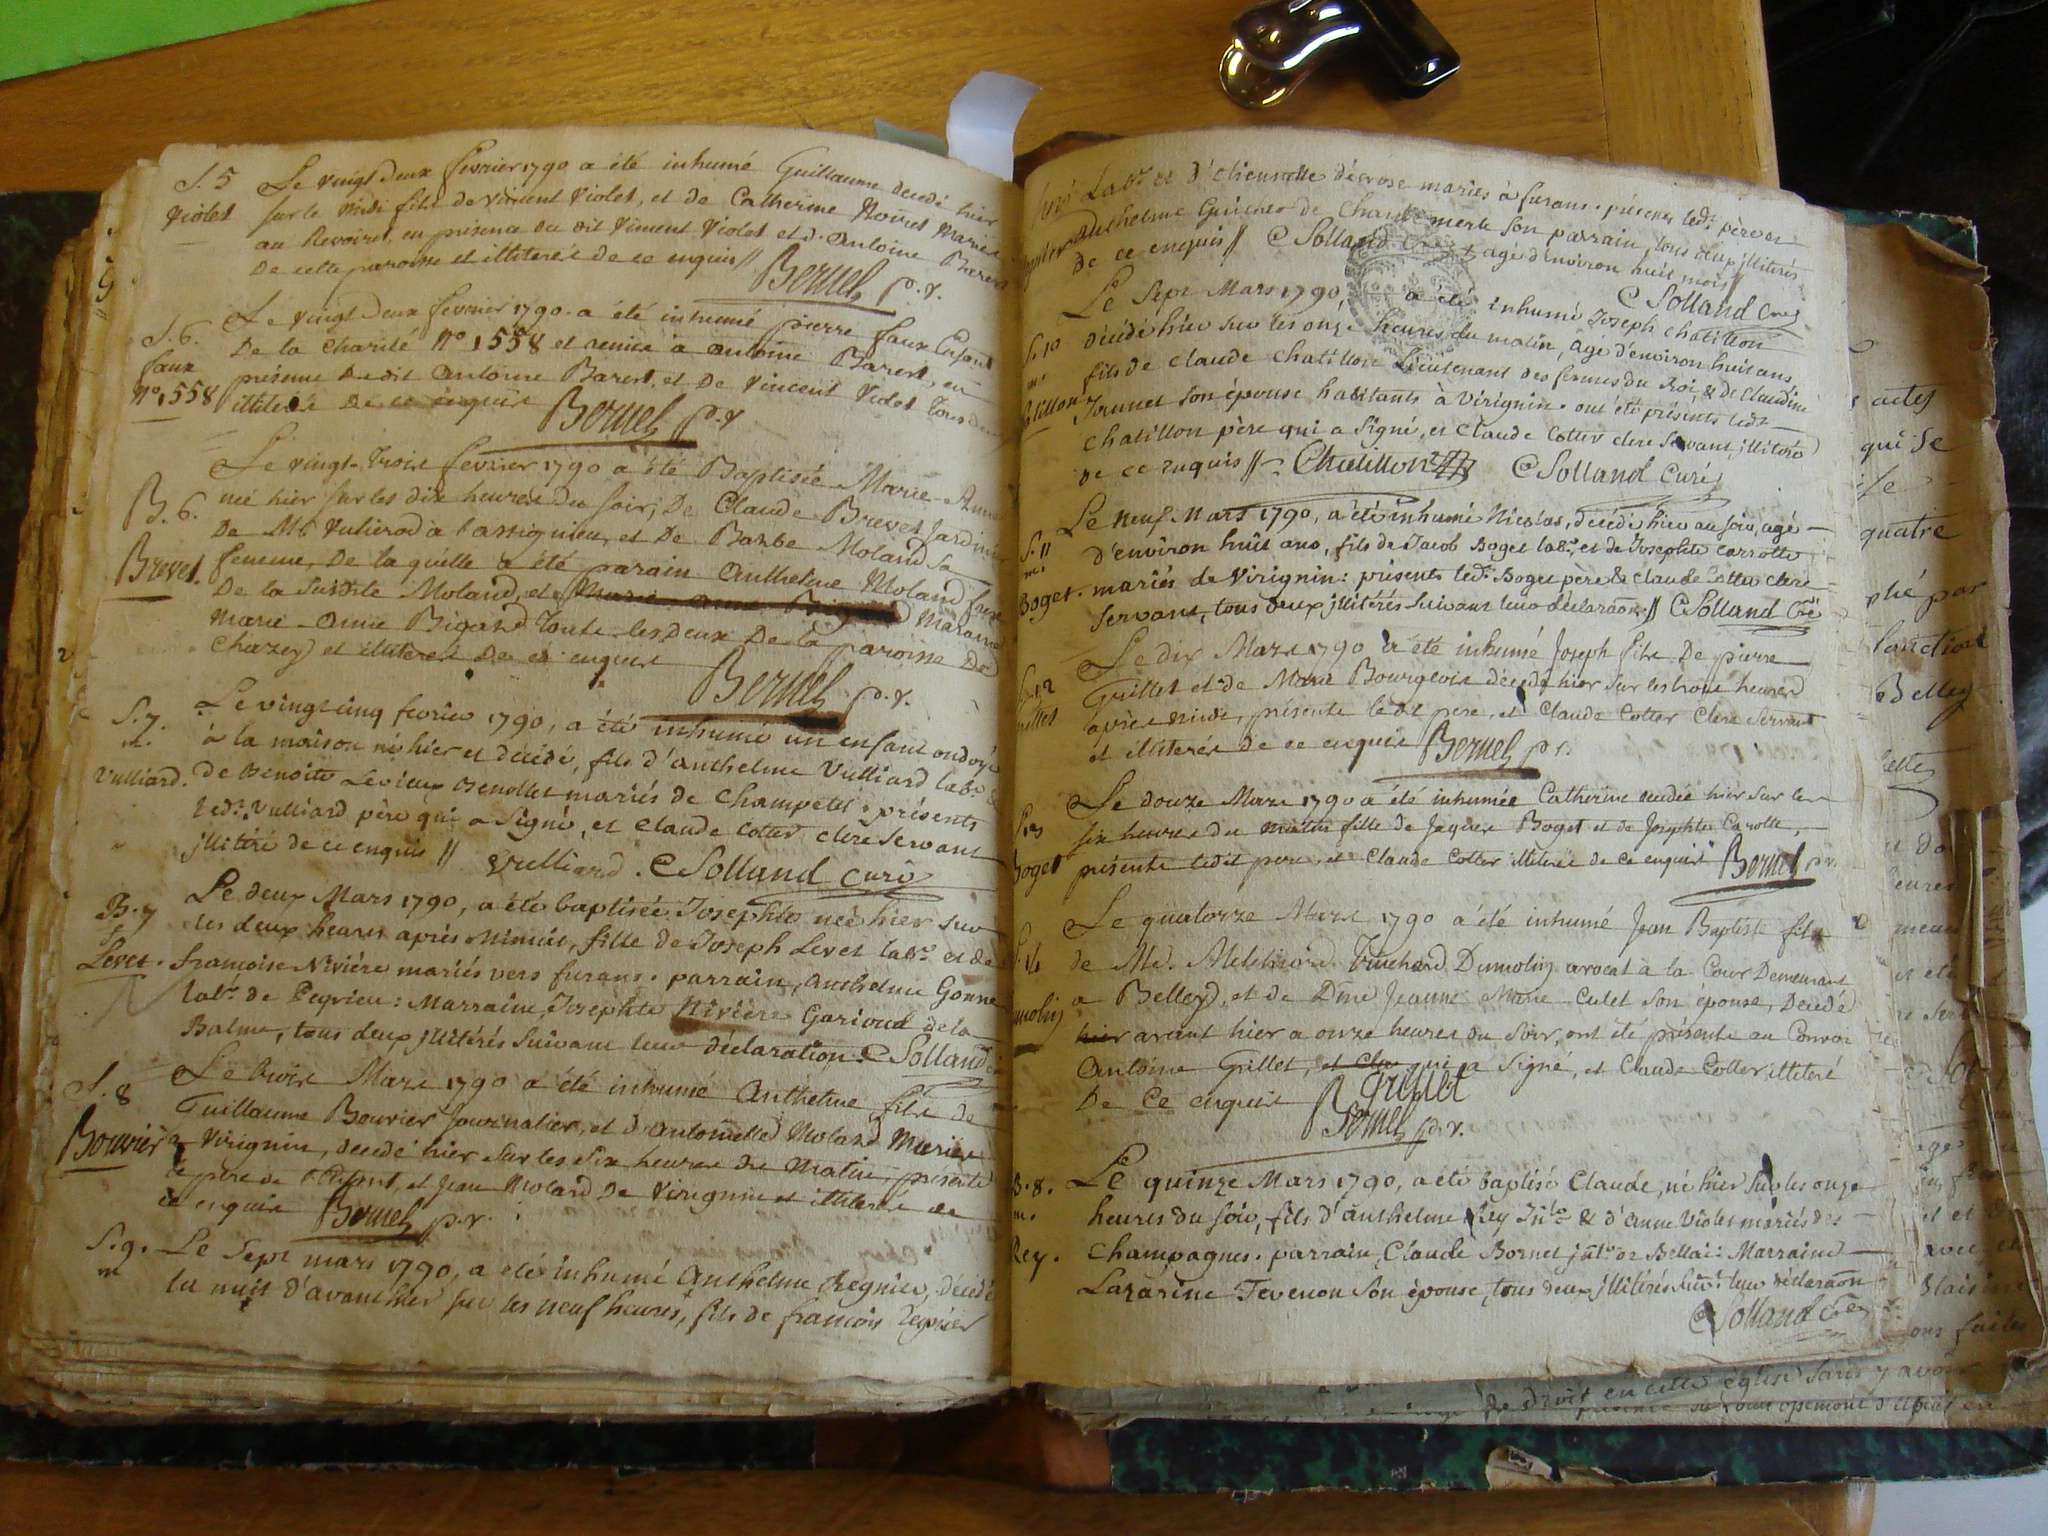 S. 5 Le vingt Deux fevrier 1790 a été inhumé Guillaume decedé hier
Violet sur le Midi fils de Vincent Violet, et de Catherine Noiret Mariés
au Revoiret, en présence du dit Vincent Violet et d'Antoine Barert
De cette paroisse et illiterés de ce enquis // Bernel p. v.
S. 6. Le vingt Deux fevrier 1790 a été inhumé pierre faux Enfant
faux De la Charité N° 1558 et remis à Antoine Barert, en
N° 1558 présence Dudit Antoine Barert, et De Vincent Violet Tous deux
illiterés De ce enquis Bernel p. v
Le vingt-trois fevrier 1790 a été Baptisée Marie-Anne
B. 6. née hier sur les dix heures du soir, De Claude Brevet Jardinier
De Mr a Lassignieu, et De Barbe Moland sa
Brevet. femme, De laquelle a été parain Anthelme Moland frere
De la Susdite Moland, et Maraine
Marie-Anne Bigard Toute les Deux De la paroisse De
Chazey et illiterés De ce enquis Bernel p. v.
S. 7. Le vingt cinq fevrier 1790, a été inhumé un enfant ondoyé
m. à la maison né hier et décédé, fils d'anthelme Vulliard labr. &
Vulliard. de Benoite Levieux Benollet mariés de Champetel: présents
ledt. Vulliard père qui a Signé, et Claude Cotter clerc Servant
jllitéré de ce enquis // Vulliard. C Solland curé
B. 7 Le deux Mars 1790, a été baptisée Josephte née hier sur
f. les deux heures après Minuit, fille de Joseph Levet labr. et de
Levet. françoise Nivière mariés vers furans. parrain, anthelme Gonne
labr. de Peyrieu: Marraine, Josephte Nivière Garioud de la
Balme, tous deux jllitérés Suivant leur déclaration. C Solland
S. 8 Le trois Mars 1790 a été inhumé Anthelme fils de
Guillaume Bouvier Journalier, et d'Antoinette Molard Mariés
Bouvier a Virignin, decedé hier sur les six heures du Matin, présents
le père de l'Enfant, et Jean Molard De Virignin et illiterés de
ce enquis Bernel p. v.
S. 9. Le Sept mars 1790, a été inhumé Anthelme Regnier, décédé
m la nuit d'avanthier sur les neuf heures, fils de françois Regnier
Labr. et d' mariés à furans. présens ledt. père et
anthelme Guicher de Chantemerle son parrain, tous deux jllitérés
de ce enquis // C Solland Cré agé d'environ huit mois //
C Solland Cré
Le Sept Mars 1790, a été inhumé Joseph Chatillon
S. 10 décédé hier sur les onze heures du matin, agé d'environ huit ans
m. fils de Claude Chatillon Lieutenant des fermes du Roi, & de Claudine
atillon Jounet son épouse habitants à Virignin. ont été présents ledt.
Chatillon père qui a Signé, et Claude Cotter clerc Servant, jllitéré
de ce enquis // Chatillon C Solland Curé
Le neuf Mars 1790, a été inhumé Nicolas, décédé hier au soir, agé
S. 11 d'environ huit ans, fils de Jacob Boget labr. et de Josephte Carrotte
m. mariés de Virignin: présents ledt. Boget père & Claude Cotter clerc
Boget. Servant, tous deux jllitérés suivant leur déclaraon // C Solland Cré
Le dix Mars 1790 a été inhumé Joseph fils De pierre
S. 12 Guillet et de Marie Bourgeois décédé hier sur les trois heures
uillet après midi, présents le dit pere, et Claude Cotter Clerc Servant
et illiterés de ce enquis Bernel p. v.
Le douze Mars 1790 a été inhumée Catherine decedée hier sur les
S. 13 six heures du matin fille de Jaques Boget et de Josephte Carotte,
Boget présents ledit pere, et Claude Cotter illiterés de ce enquis Bernel p. v.
Le quatorze Mars 1790 a été inhumé Jean Baptiste fils
S. 14 de Me. Melchior Truchard Dumolin avocat à la Cour Demeurant
umolin a Belley, et de Dme Jeanne Marie Culet son épouse, Decédé
hier avant hier a onze heures du Soir, ont été présents au Convoi
Antoine Grillet, et Clau qui a Signé, et Claude Cotter illiteré
De ce enquis Grillet
Bernel p. v.
B. 8. Le quinze Mars 1790, a été baptisé Claude, né hier sur les onze
m. heures du soir, fils d'anthelme Rey & d'anne Violet mariés des
Rey. Champagnes. parrain, Claude Bornet de Bellai: Marraine
Lazarine Tevenon son épouse, tous deux jllitérés suivt. leur déclaraon
C Solland Cré
actes
qui se
quatre
phé par
Belley